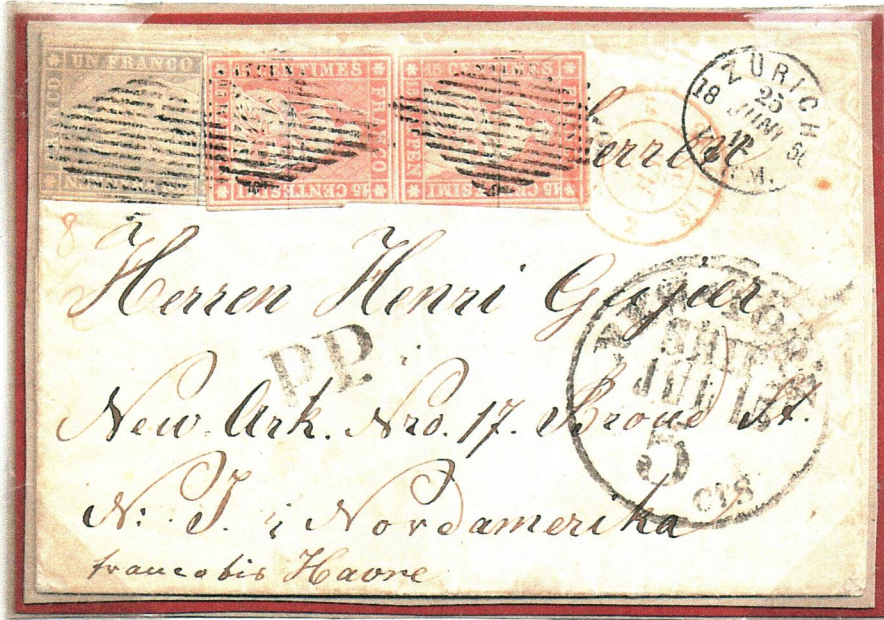 UN FRANCO
FRANCO
15 CENTIMES
FRANCO
15 CENTESIMI
15 CENTIMES
15 CENTESIMI
ZÜRICH
25
18 JUNI
Herren
Herren Henri
P.P.
NEW YORK
SHIP
JUL
5
CTS
New. Ark. Nro. 17. Broud St.
N: J. i Nordamerika
franco bis Havre